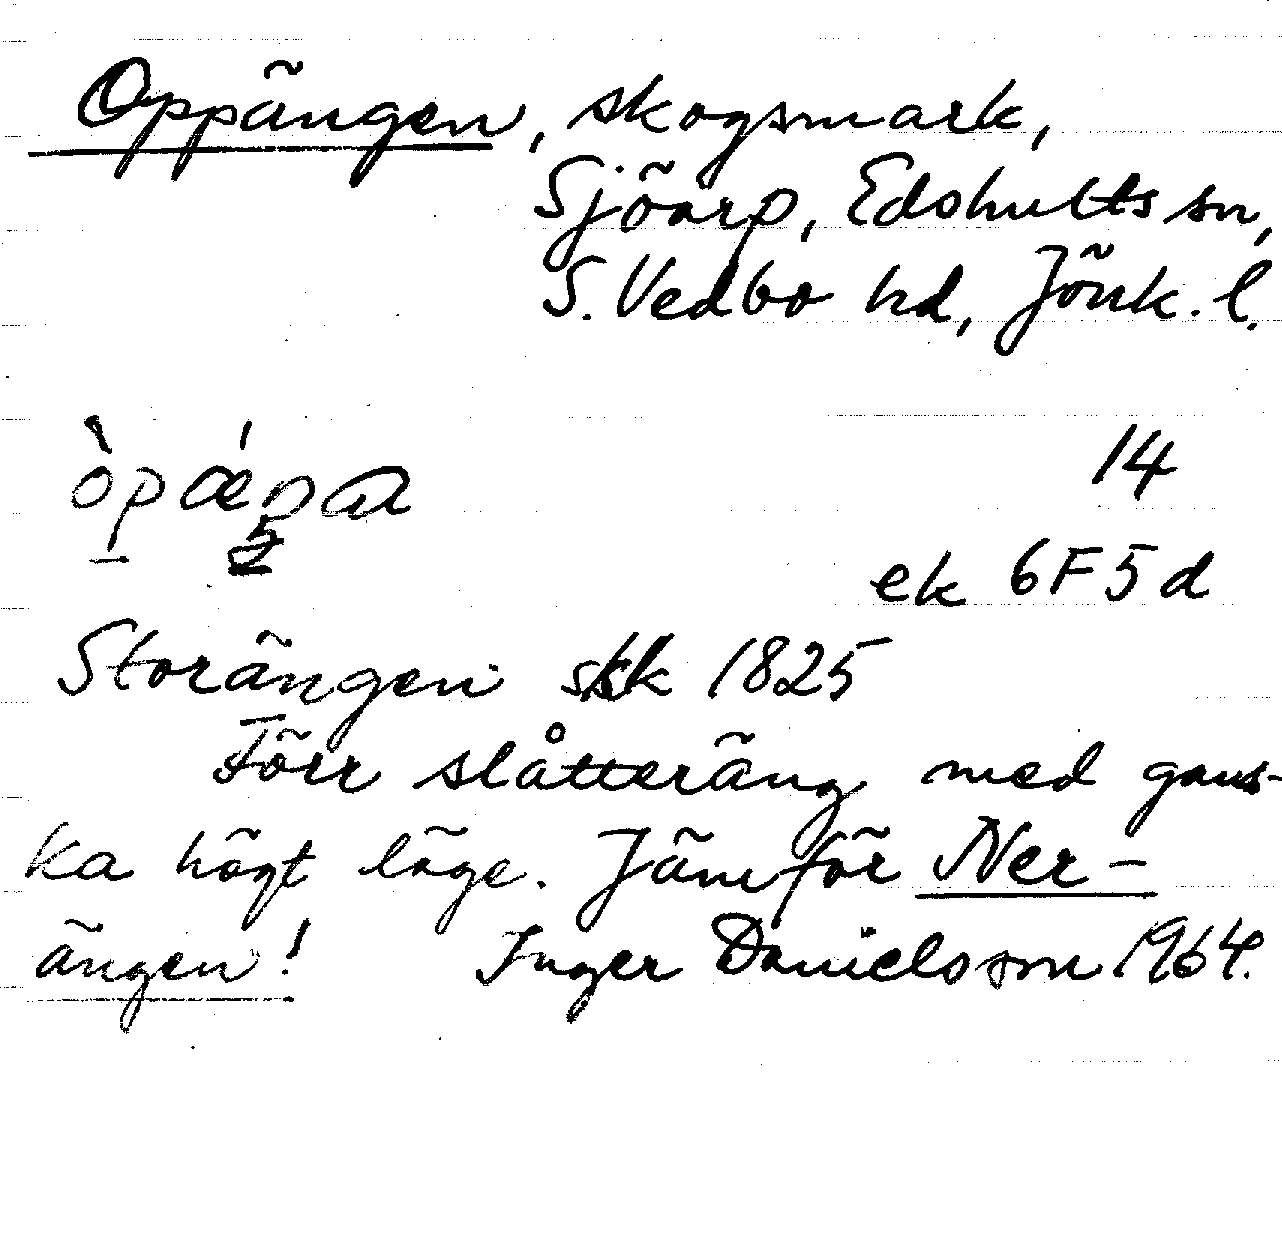 Oppängen, skogsmark,
Sjöarp, Edshults sn,
S. Vedbo hd, Jönk. l.
14
ek 6F5d
Storängen skk 1825
Förr slåtteräng med gans-
ka högt läge. Jämför Ner-
ängen! Inger Danielsson 1964.